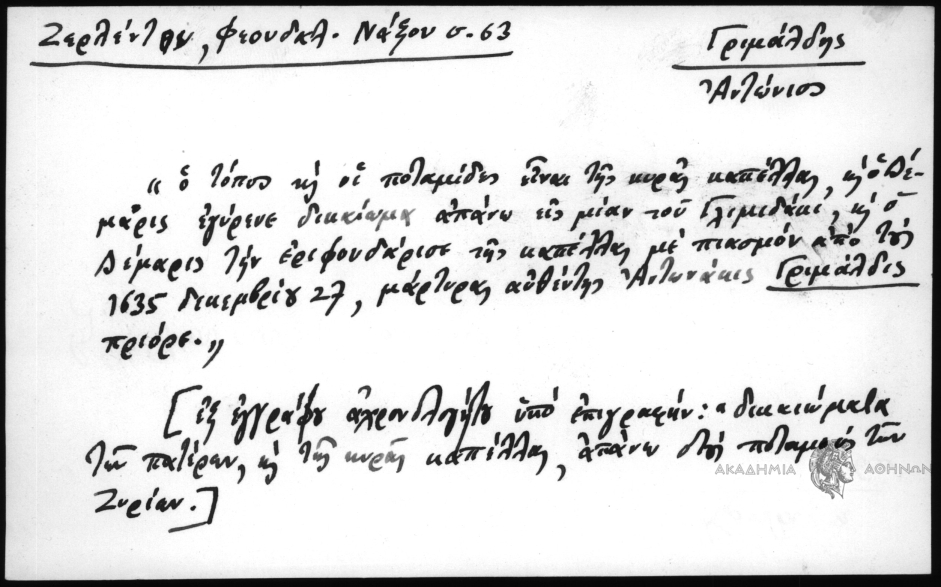 Ζερλέντου, Φεουδαλ. Νάξου σ. 63
Γριμάλδης
Ἀντώνιος
« ὁ τόπος κὴ οἱ ποταμίδες εἶναι τῆς κυρᾶς καπέλλας, κὴ ὁ Δέ-
μαρις ἐγύρευε δικαίωμα ἀπάνω εἰς μίαν τοῦ Γλιμιδάκι, κὴ ὁ
Δέμαρις τὴν ἐριφουδάρισε τῆς καπέλλας μὲ πιασμόν ἀπὸ τούς
1635 δικεμβρίου 27, μάρτυρας αὐθέντης Ἀντωνάκις Γριμάλδις
πριόρε. »
[ἐξ ἐγγράφου ἀχρονολογήτου ὑπό ἐπιγραφήν: « δικαιώματα
τῶν πατέρων, κὴ τῆς κυρᾶς καπέλλας, ἀπάνω στούς ποταμούς τῶν
Ζυρίων.]
ΑΚΑΔΗΜΙΑ ΑΘΗΝΩΝ